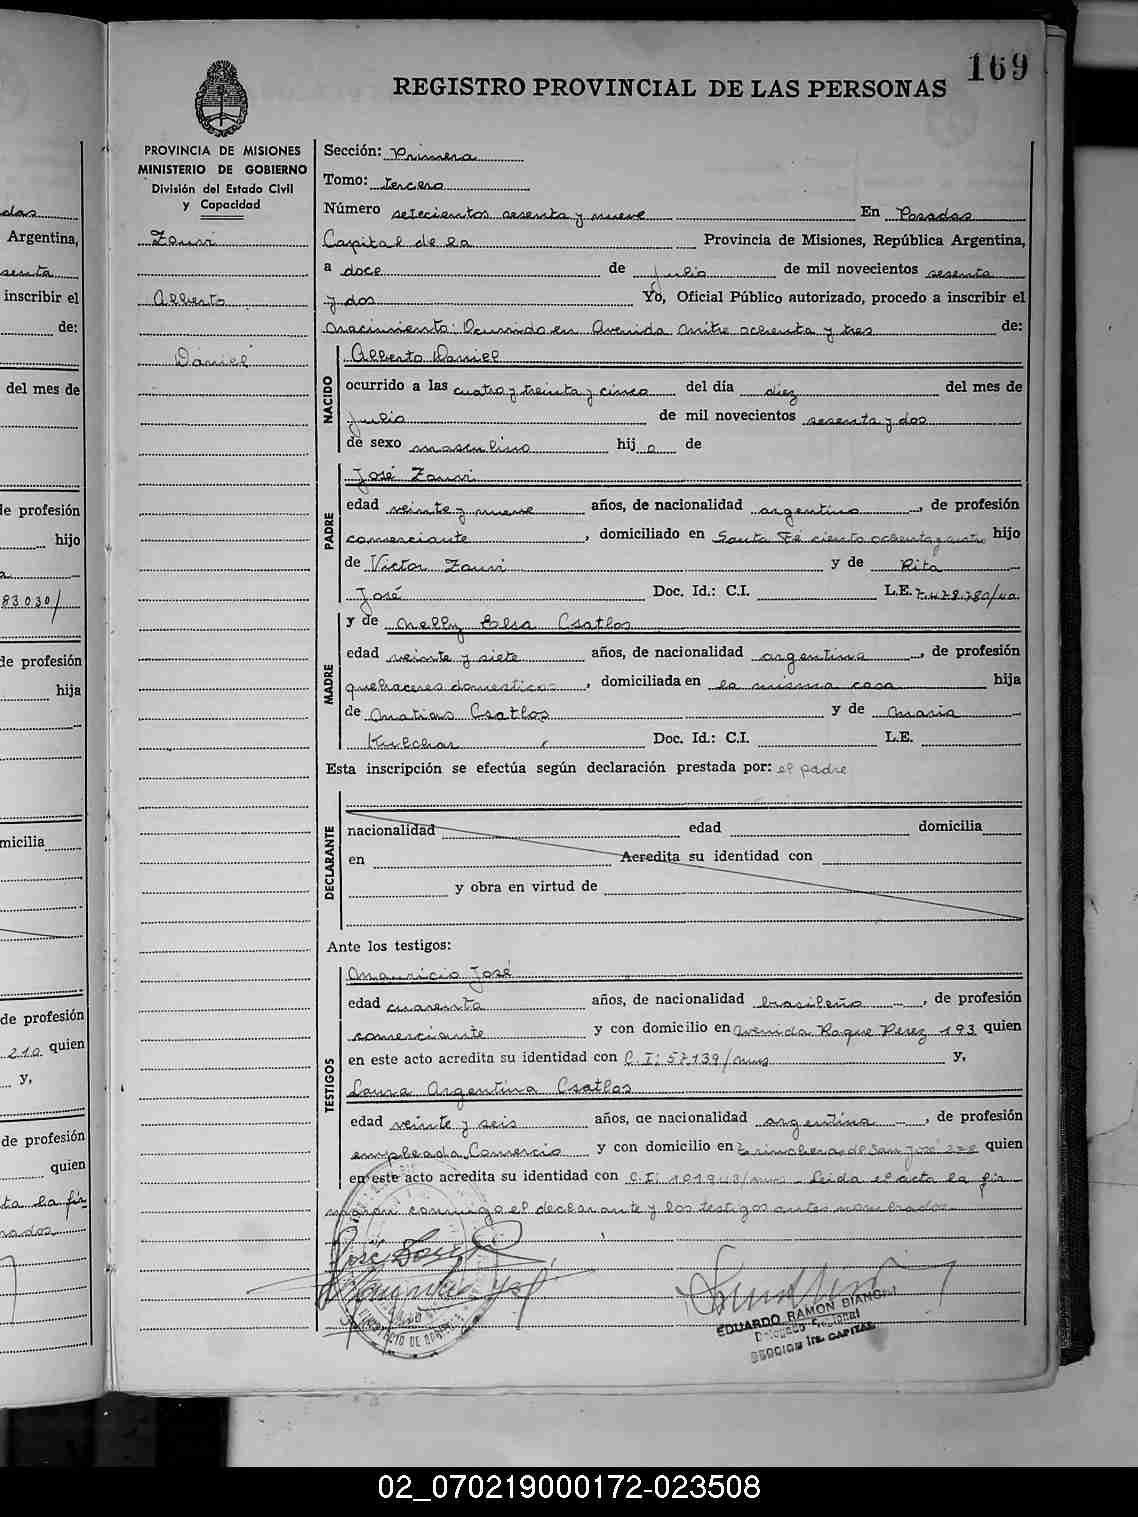 169
REGISTRO PROVINCIAL DE LAS PERSONAS
PROVINCIA DE MISIONES
MINISTERIO DE GOBIERNO
División del Estado Civil
y Capacidad
Zauvi
Alberto
Daniel
Sección: Primera
Tomo: tercero
Número setecientos sesenta y nueve En Posadas
Capital de la Provincia de Misiones, República Argentina,
a doce de julio de mil novecientos sesenta
y dos Yo, Oficial Público autorizado, procedo a inscribir el
nacimiento: Ocurrido en Avenida Mitre ochenta y tres de:
NACIDO
Alberto Daniel
ocurrido a las cuatro y treinta y cinco del día diez del mes de
julio de mil novecientos sesenta y dos
de sexo masculino hij o de
PADRE
José Zauvi
edad veinte y nueve años, de nacionalidad argentino, de profesión
comerciante, domiciliado en Santa Fé ciento ochenta y cuatro hijo
de Victor Zauvi y de Rita
José Doc. Id.: C.I. L.E. 7.478.780/
y de Nelly Elsa Csatlos
MADRE
edad veinte y siete años, de nacionalidad argentina, de profesión
quehaceres domesticos, domiciliada en la misma casa hija
de Matias Csatlos y de Maria
Kulchar Doc. Id.: C.I. L.E.
Esta inscripción se efectúa según declaración prestada por: el padre
DECLARANTE
nacionalidad edad domicilia
en Acredita su identidad con
y obra en virtud de
Ante los testigos:
TESTIGOS
Mauricio José
edad cuarenta años, de nacionalidad brasileño, de profesión
comerciante y con domicilio en Avenida Roque Perez 193 quien
en este acto acredita su identidad con C.I: 57.139/mnes y,
Laura Argentina Csatlos
edad veinte y seis años, de nacionalidad argentina, de profesión
empleada Comercio y con domicilio en Trinchera de San José quien
en este acto acredita su identidad con C.I: Leida el acta la fir
maron conmigo el declarante y los testigos antes nombrados
EDUARDO RAMON BIANCHI
Delegado Regional
SECCION 1ra. CAPITAL
das
Argentina,
senta
inscribir el
de:
del mes de
de profesión
hijo
83030/
de profesión
hija
micilia
de profesión
210 quien
y,
de profesión
quien
ta la fir
rados
02_070219000172-023508